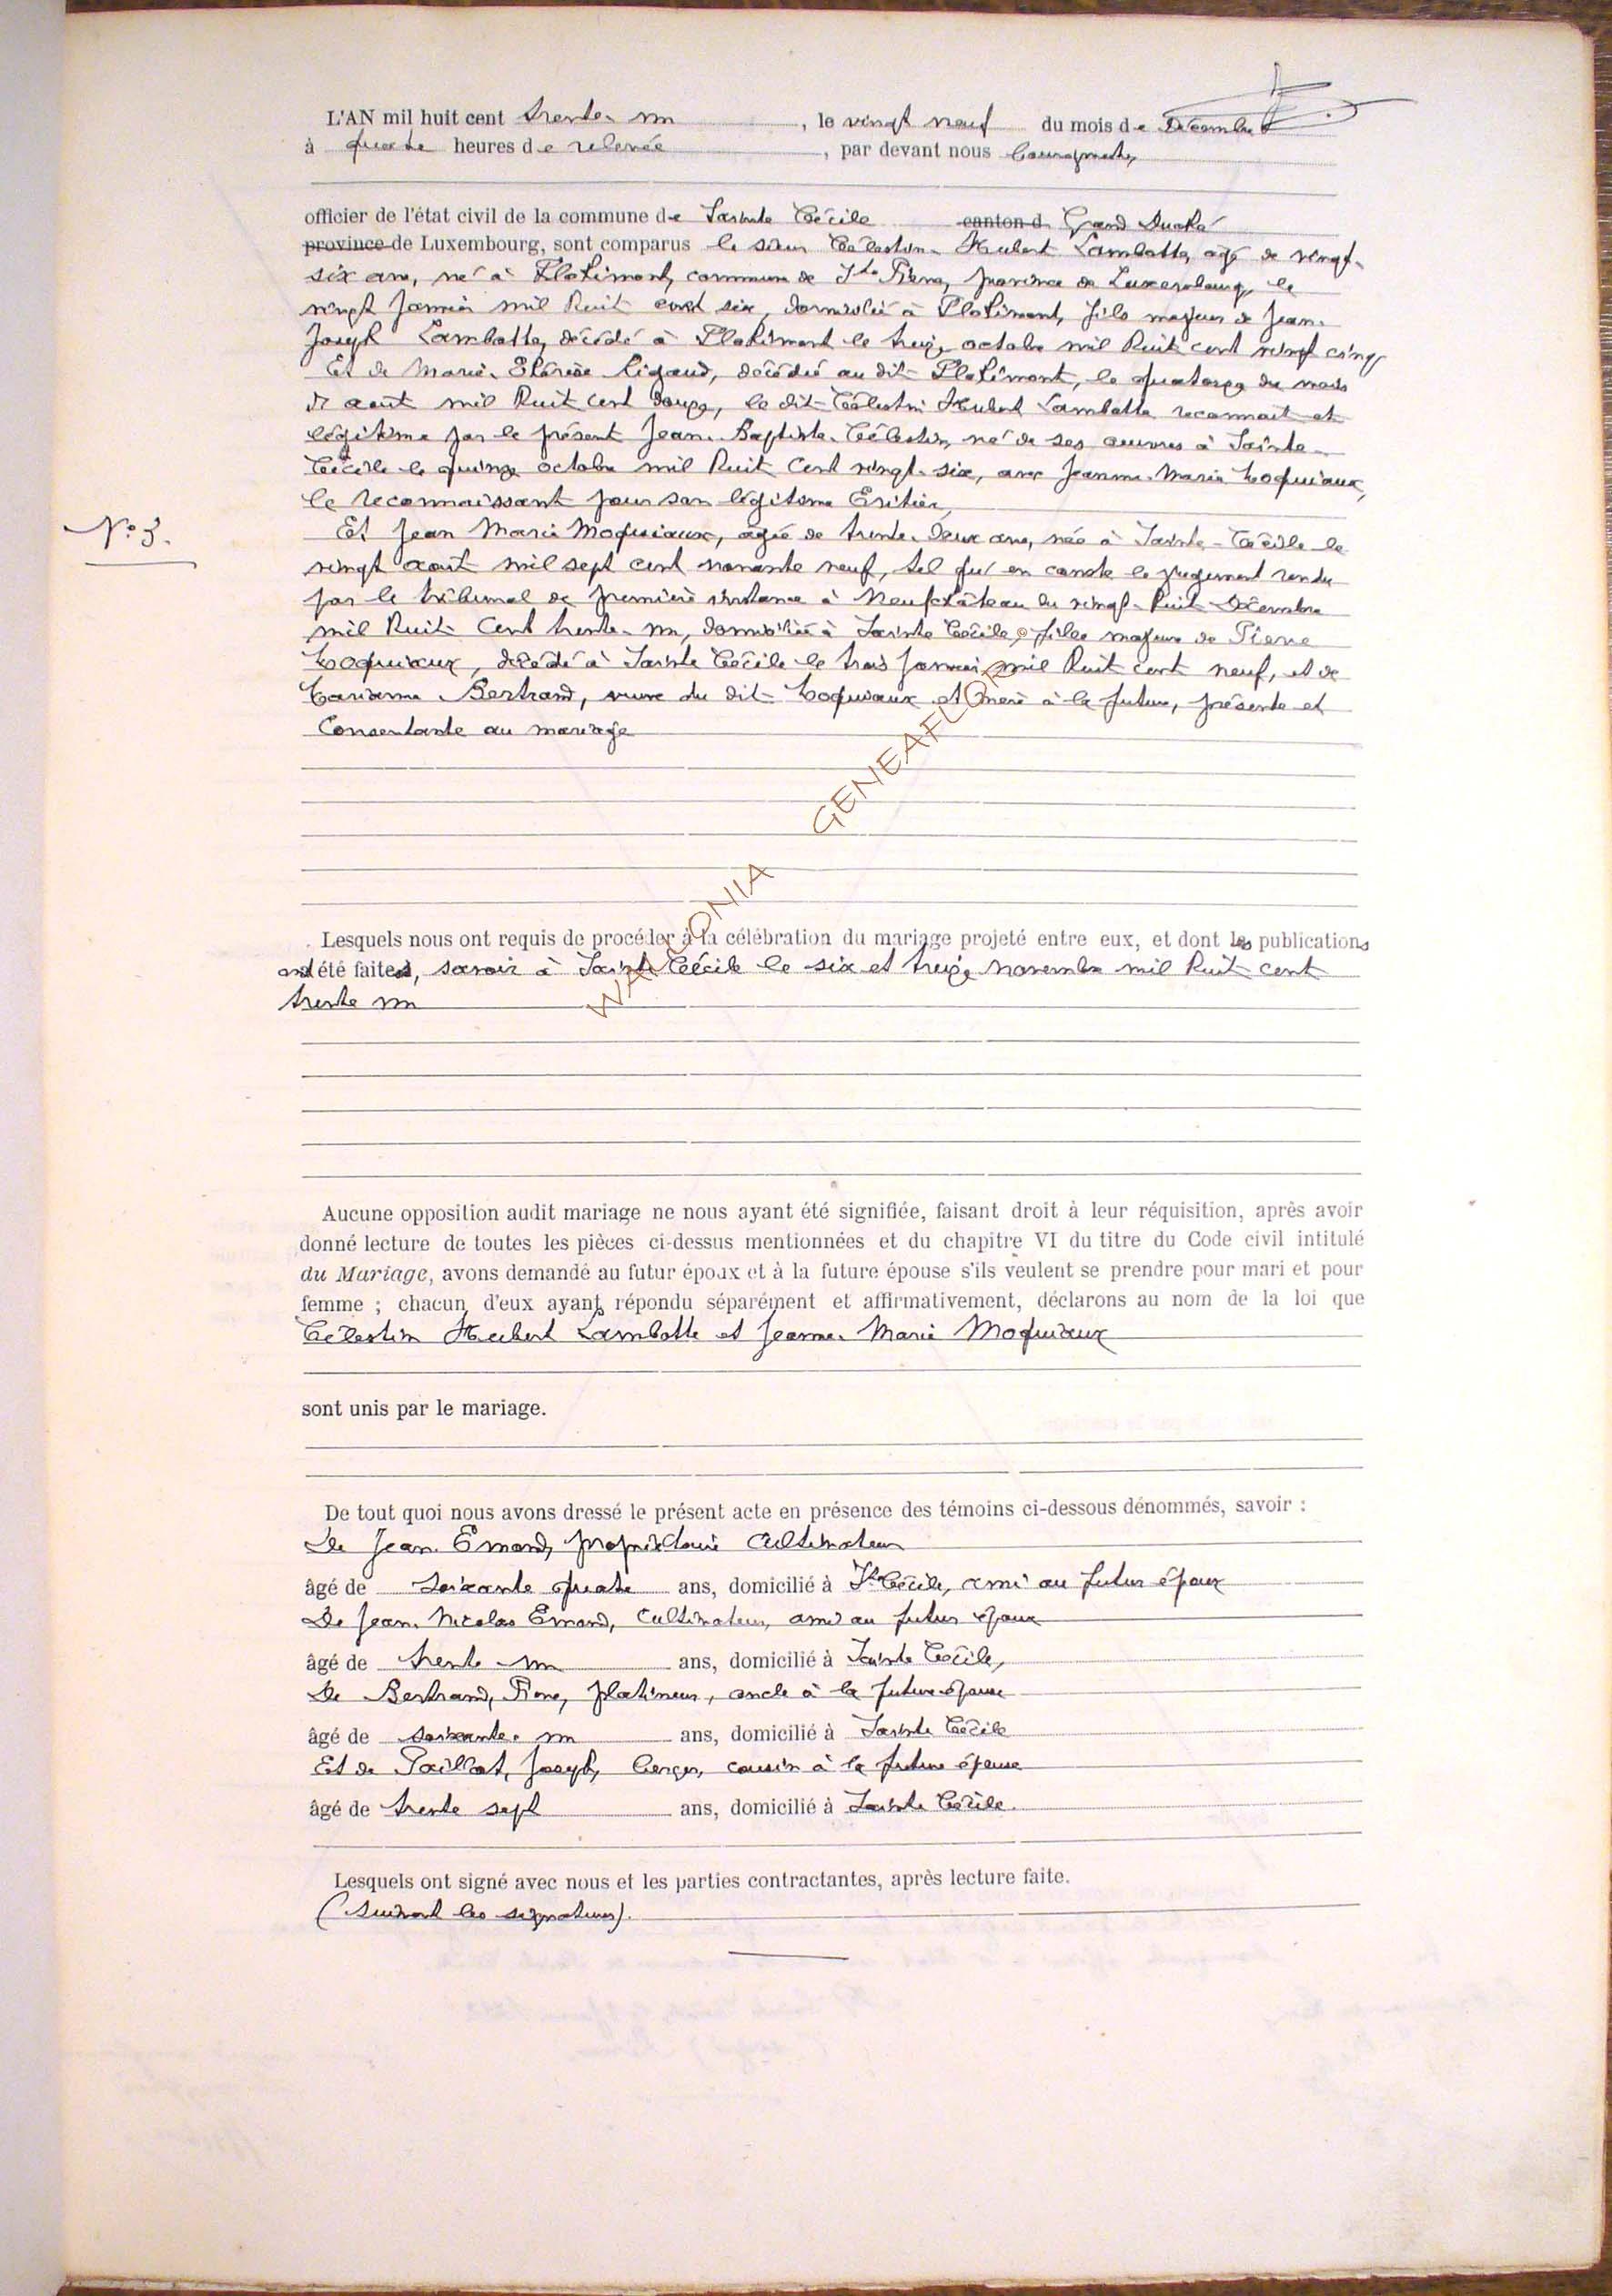 L'AN mil huit cent trente-un, le vingt neuf du mois de Décembre
à quatre heures de relevée, par devant nous Bourgmestre,
officier de l'état civil de la commune de Sainte Cécile canton d Grand Duché
province de Luxembourg, sont comparus le sieur Célestin-Hubert Lambotte, agé de vingt-
six ans, né à Flohimont, commune de St Pierre, province de Luxembourg, le
vingt Janvier mil huit cent six, domicilié à Flohimont, fils majeur de Jean-
Joseph Lambotte, décédé à Flohimont le treize octobre mil huit cent vingt cinq
Et de Marie-Thérèse Rigaud, décédée au dit Flohimont, le quatorze du mois
d' août mil huit cent douze, le dit Célestin Hubert Lambotte reconnait et
légitime par le présent Jean-Baptiste-Célestin, né de ses œuvres à Sainte-
Cécile le quinze octobre mil huit cent vingt-six, avec Jeanne-Marie Moquiaux,
le reconnaissant pour son légitime Eritier,
N° 3.
Et Jean Marie Moquiaux, agée de trente-deux ans, née à Sainte-Cécile le
vingt août mil sept cent nonante neuf, tel qu'en conste le jugement rendu
par le tribunal de première instance à Neufchâteau du vingt-huit Décembre
mil huit cent trente-un, domiciliée à Sainte Cécile, fille majeure de Pierre
Moquiaux, décédé à Sainte Cécile le trois Janvier mil huit cent neuf, et de
Bertrand, veuve du dit Moquiaux et mère à la future, présente et
Consentante au mariage
WALLONIA GENEAFLOR
Lesquels nous ont requis de procéder à la célébration du mariage projeté entre eux, et dont les publications
ont été faites, savoir à Sainte Cécile le six et treize novembre mil huit cent
trente un
Aucune opposition audit mariage ne nous ayant été signifiée, faisant droit à leur réquisition, après avoir
donné lecture de toutes les pièces ci-dessus mentionnées et du chapitre VI du titre du Code civil intitulé
du Mariage, avons demandé au futur époux et à la future épouse s'ils veulent se prendre pour mari et pour
femme ; chacun d'eux ayant répondu séparément et affirmativement, déclarons au nom de la loi que
Célestin Hubert Lambotte et Jeanne-Marie Moquiaux
sont unis par le mariage.
De tout quoi nous avons dressé le présent acte en présence des témoins ci-dessous dénommés, savoir :
De Jean Emond, propriétaire Cultivateur
âgé de soixante quatre ans, domicilié à Ste Cécile, ami au futur époux
De Jean-Nicolas Emond, Cultivateur, ami au futur époux
âgé de trente-un ans, domicilié à Sainte Cécile,
De Bertrand, Pierre, platineur, oncle à la future épouse
âgé de soixante-un ans, domicilié à Sainte Cécile
Et de Paillot, Joseph, berger, cousin à la future épouse
âgé de trente sept ans, domicilié à Sainte Cécile.
Lesquels ont signé avec nous et les parties contractantes, après lecture faite.
(Suivent les signatures).